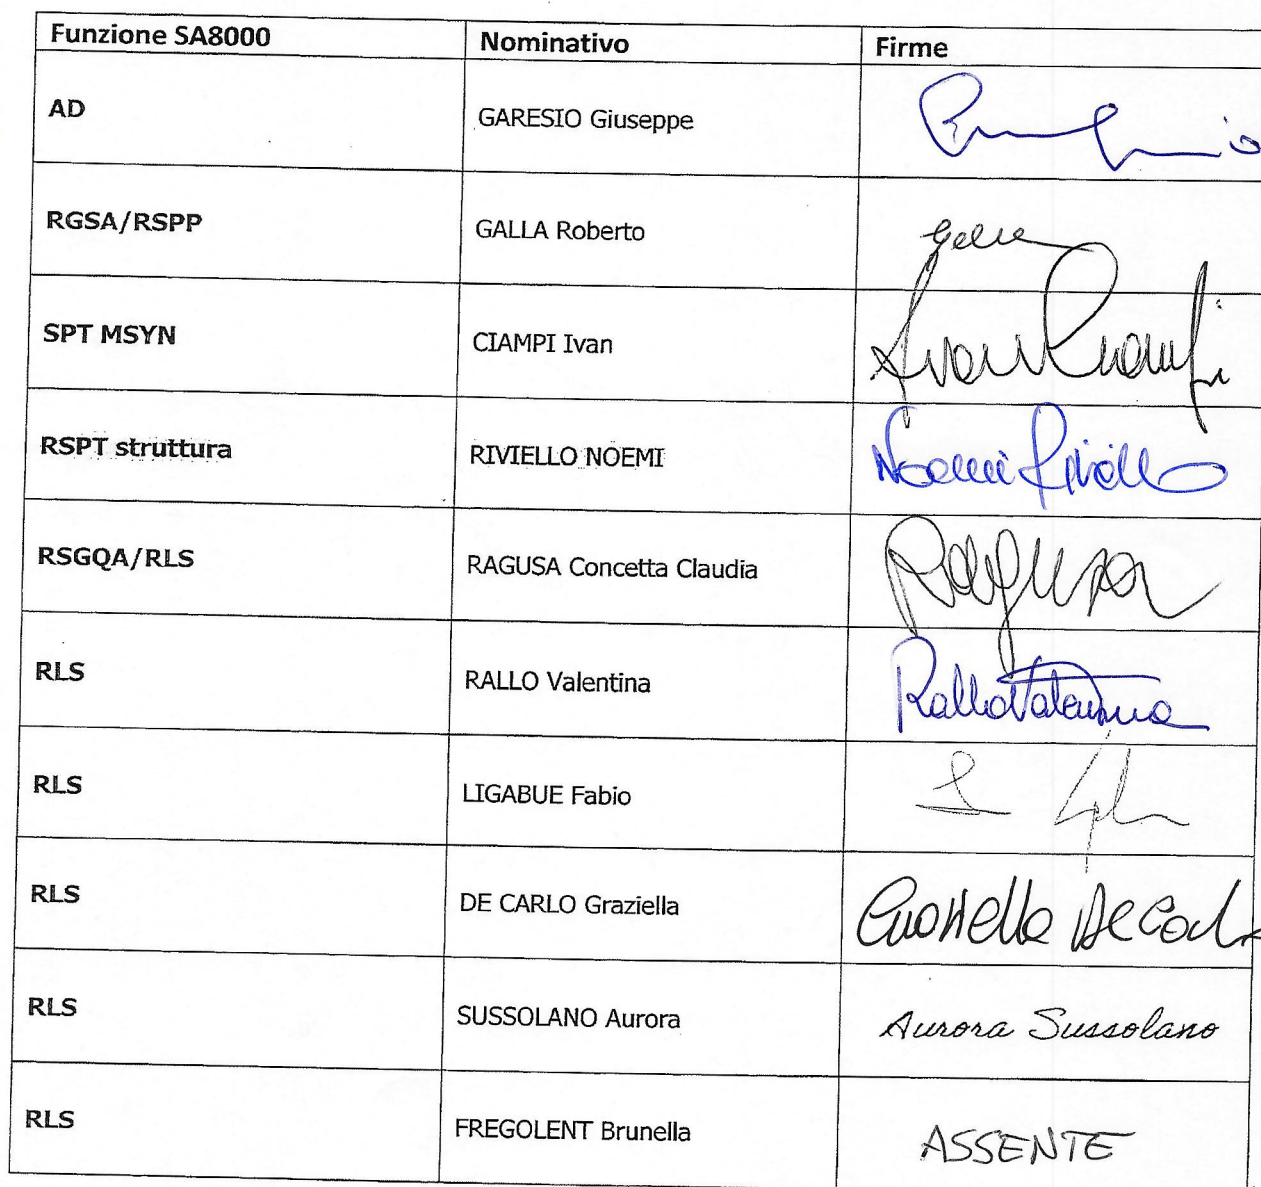 Funzione SA8000 Nominativo Firme
AD GARESIO Giuseppe
RGSA/RSPP GALLA Roberto Galla
SPT MSYN CIAMPI Ivan Ivan Ciampi
RSPT struttura RIVIELLO NOEMI Noemi Riviello
RSGQA/RLS RAGUSA Concetta Claudia Ragusa
RLS RALLO Valentina Rallo Valentina
RLS LIGABUE Fabio
RLS DE CARLO Graziella Graziella De Carlo
RLS SUSSOLANO Aurora Aurora Sussolano
RLS FREGOLENT Brunella ASSENTE